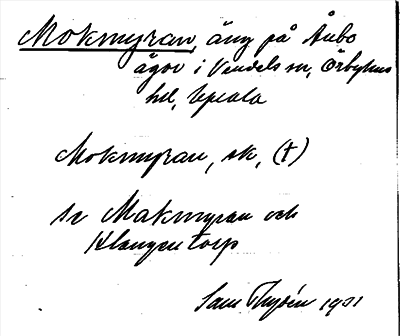 Mokmyran, äng på Åubo
ägor i Vendels sn, Örbyhus
hd, Upsala
Mokmyran, sk, (†)
se Makmyran och
Klangentorp
Sam Thysén 1921